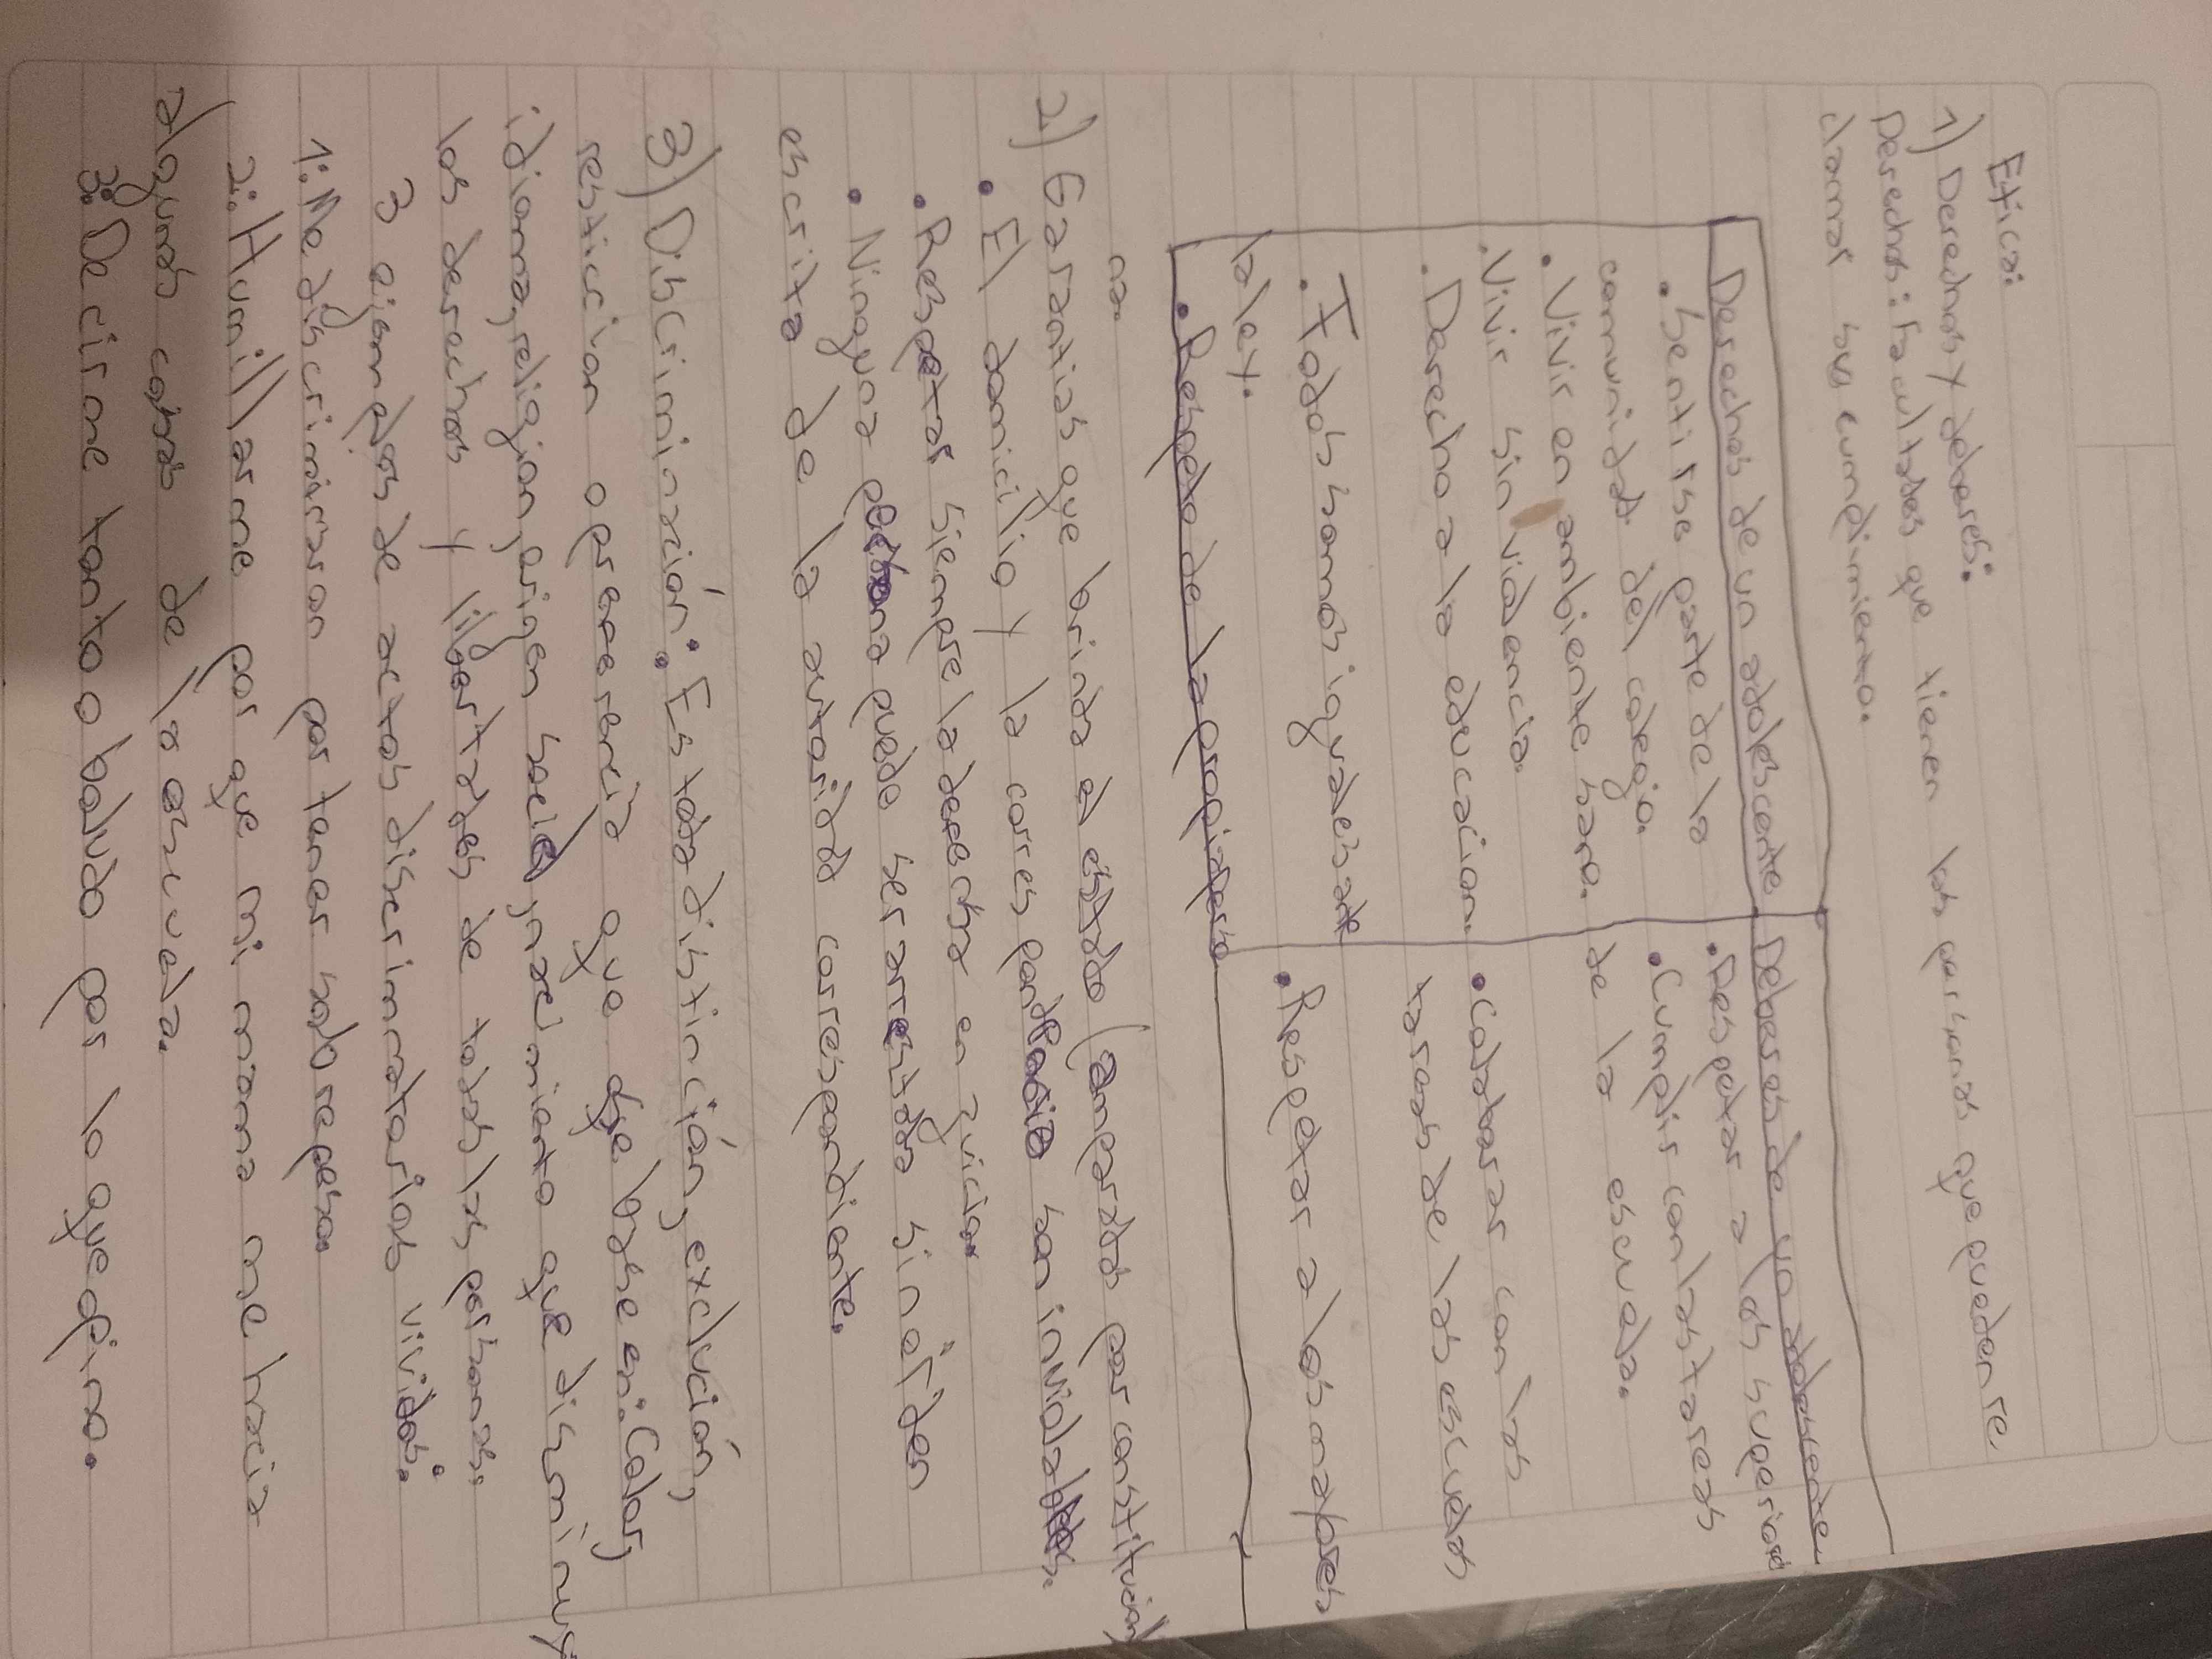 Etica:
1) Derechos y deberes:
Derechos: Facultades que tienen las personas que pueden re
clamar su cumplimiento.
Derechos de un adolescente
. Sentirse parte de la
comunidad del colegio.
. Vivir en ambiente sano.
. Vivir sin violencia.
. Derecho a la educacion.
. Todos somos iguales ante
la ley.
. Respeto de la propia perso
na.
Deberes de un adolescente
. Respetar a los superiores
. Cumplir con las tareas
de la escuela.
. Colaborar con las
tareas de las escuelas
. Respetar a los mayores
2) Garantias que brinda el estado (amparado por constitución)
. El domicilio y la correspondencia son inviolables.
. Respetar siempre la derecha en juicio.
. Ninguna persona puede ser arrestada sin orden
escrita de la autoridad correspondiente.
3) Discriminación: Es toda distinción, exclución,
restriccion o preferencia que se base en: Color,
idioma, religion, origen social, nacimiento que disminuy
los derechos y libertades de todas las personas.
3 ejemplos de actos discrimnatorios vividos:
1: Me discriminaron por tener sobrepeso.
2: Humillarme por que mi mama me hacia
algunas cosas de la escuela.
3: Decirme tonto o boludo por lo que opino.